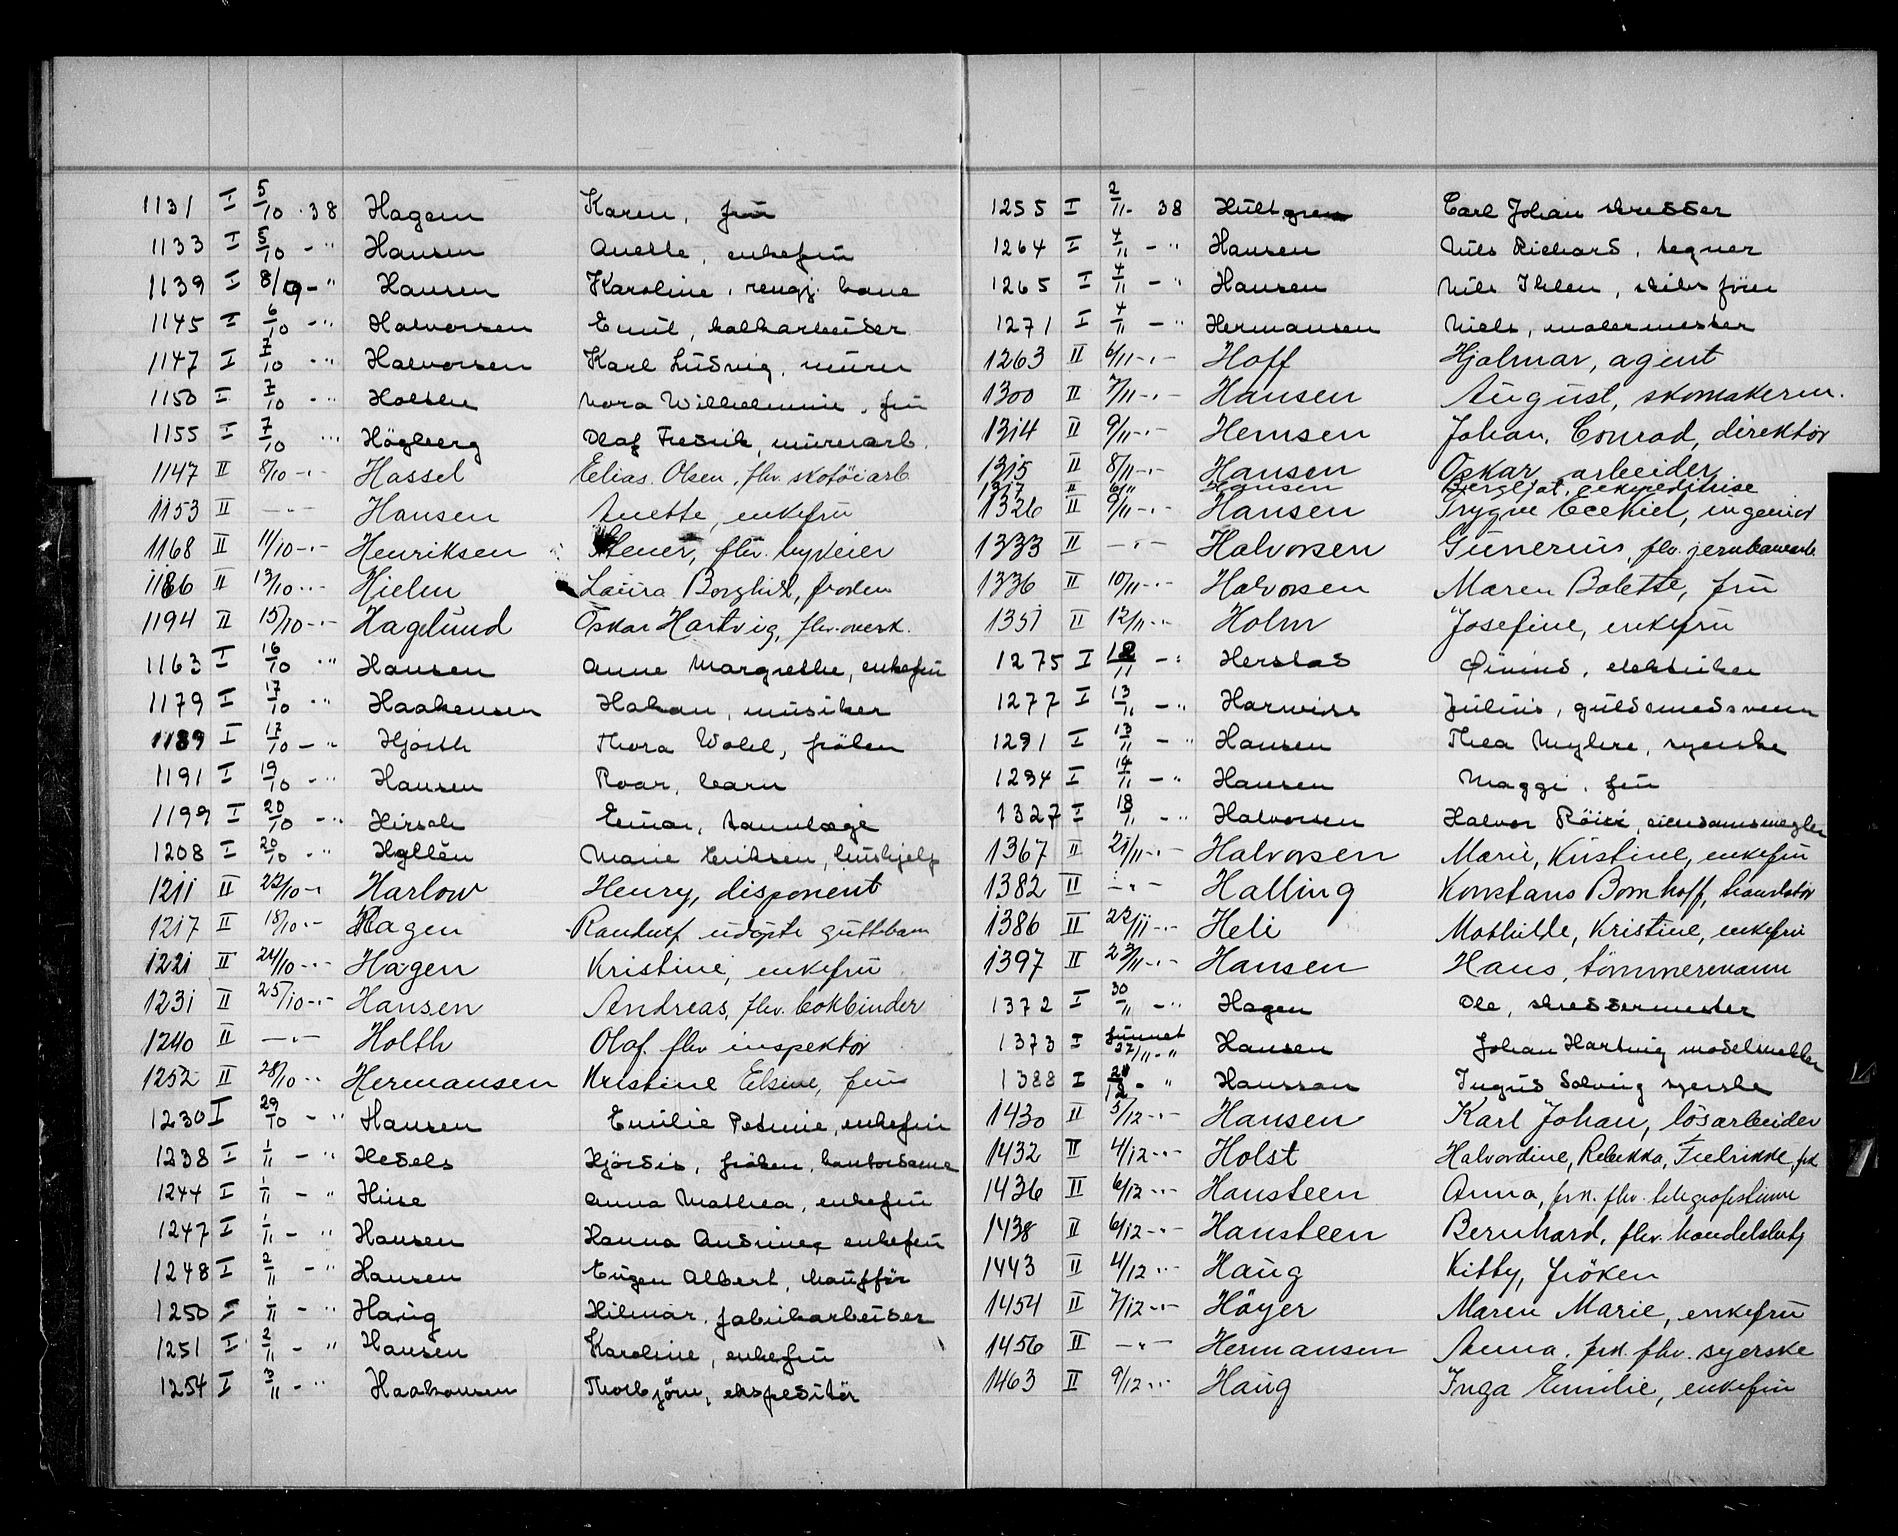 1131 I 5/10 · 38 Hagem Karen, frü
1133 I 5/10 - " Hansen Anette, enkefrü
1139 I 8/10 - " Hansen Karoline, rengj. kone
1145 I 6/10 - " Halvorsen Emil, kalkarbeider
1147 I 7/10 - " Halvorsen Karl Ludvig, mürer
1150 I 7/10 - " Nora Wilhelmine, frü
1155 I 7/10 " Högberg Olaf Fredrik, mürerarb.
1147 II 8/10 - " - Hassel Elias Olsen, fhv. skotöiarb.
1153 II - " - Hansen Anette, enkefrü
1168 II 11/10 - " - Henriksen fhv. byveier
1186 II 13/10 - " - Hielm Laüra Borghild, fröken
1194 II 15/10 - " - Hagelünd Oskar Hartvig, fhv. overk.
1163 I 16/10 " Hansen Anne Margrethe, enkefrü
1179 I 17/10 " Haakensen Hakan, müsiker
1189 I 17/10 - " Hjorth Thora Wold, fröken
1191 I 19/10 - " Hansen Roar, barn
1199 I 20/10 - " Hirsch Einar, tannlæge
1208 I 20/10 - " Hyllén Marie Eriksen, hüshjelp
1211 II 22/10 - " Harlow Henry, disponent
1217 II 18/10 - " - Hagen Randulf üdöpte güttbarn
1221 II 24/10 - " - Hagen Kristine, enkefrü
1231 II 25/10 - " - Hansen Andreas, fhv. bokbinder
1240 II - " - Holth Olaf. fhv inspektör
1252 II 28/10 - " Hermansen Kristine Elsine, frü
1230 I 29/10 - " Hansen Emilie Petrine, enkefrü
1238 I 1/11 - " Hedels Hjördis, fröken, kontordame
1244 I 1/11 - " Anna Mathea, enkefrü
1247 I 1/11 - " Hansen Hanna Andrine, enkefrü
1248 I 2/11 - " Hansen Eügen Albert, chaufför
1250 I 1/11 - " Haüg Hilmar, fabrikarbeider
1251 I 2/11 - " Hansen Karoline, enkefrü
1254 I 3/11 - " Haakonsen Thorbjörn, ekspeditör
1255 I 2/11 - 38 Hültgren Carl Johan skredder
1264 I 4/11 - " Hansen Nils Richard, tegner
1265 I 4/11 - " Hansen Nils Ihlen, skibsförer
1271 I 4/11 - " Hermansen Niels, malermester
1263 II 6/11 - " - Hoff Hjalmar, agent
1300 II 7/11 - " - Hansen August, skomakerm.
1314 II 9/11 - " - Hemsen Johan, Conrad, direktör
1315 II 8/11 - " - Hansen Oskar, arbeider
1317 " 6/11 Hansen Bergljot, expeditrise
1326 II 9/11 - " - Hansen Trygve Ezekiel, ingeniör
1333 II - " - Halvorsen Günerius, fhv. jernbanearb
1336 II 10/11 - " - Halvorsen Maren Bolette, frü
1351 II 12/11 - " - Holm Josefine, enkefrü
1275 I 12/11 - " Herstad Öivind, elektriker
1277 I 13/11 - " Jülius, güldsmedsvenn
1291 I 13/11 - " Hansen Thea Myhre, syerske
1294 I 14/11 - " Hansen Maggi, frü
1327 I 18/11 - " Halvorsen Halvor eiendomsmegler
1367 II 21/11 - " - Halvorsen Marie, Kristine, enkefrü
1382 II - " - Halling Konstans Bomhoff, translatör
1386 II 22/11 - " - Heli Mathilde, Kristine, enkefrü
1397 II 23/11 - " - Hansen Hans, tömmermann
1372 I 30/11 - " Hagen Ole, skreddermester
1373 I fünnet 22/11 - " Hansen Johan Hartvig modelsnekker
1388 I - " Hanssen Ingrid Solveig syerske
1430 II 5/12 - " - Hansen Karl Johan, lösarbeider
1432 II 4/12 - " - Holst Halvordine, Rebekka, Fredrikke, frk
1436 II 6/12 - " - Hansteen Anna, frk. fhv. telegrafistinne
1438 II 6/12 - " - Hansteen Bernhard, fhv. handelsbetj
1443 II 4/12 - " - Haüg Kitty, fröken
1454 II 7/12 - " - Höyer Maren Marie, enkefrü
1456 II - " - Hermansen Anna. frk. fhv. syerske
1463 II 9/12 - " - Haüg Inga Emilie, enkefrü